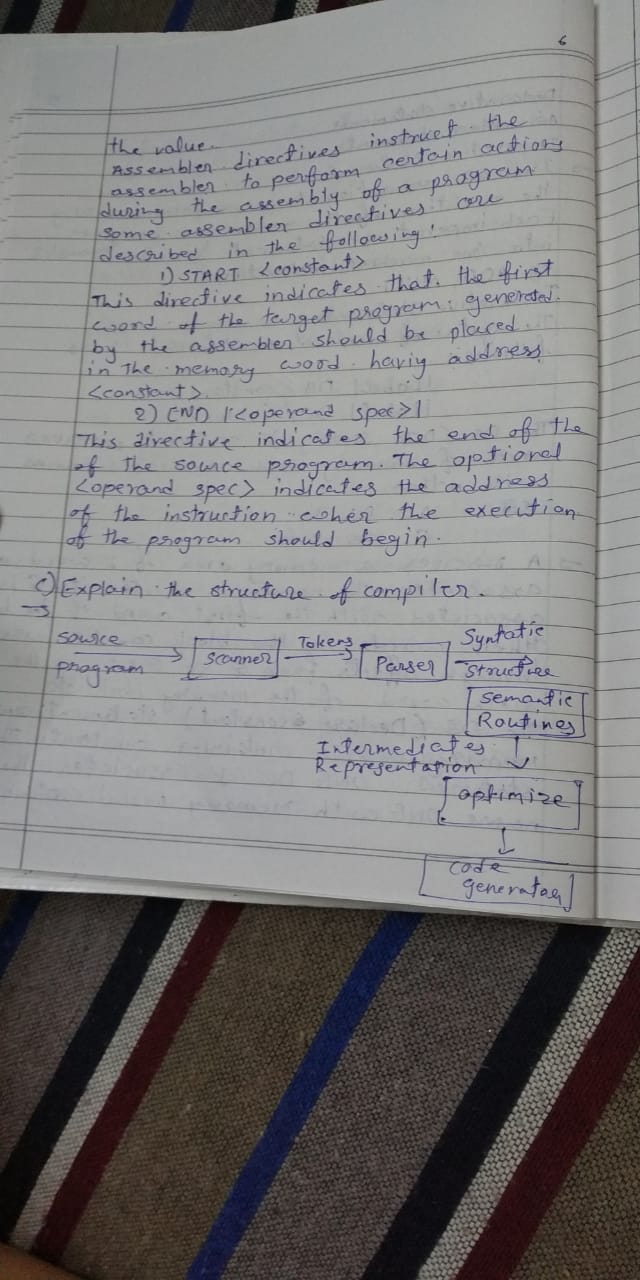 6
the value.
Assembler directives instruct the
assembler to perform certain actions
during the assembly of a program
some assembler directives are
described in the following:
1) START <constant>
This directive indicates that the first
word of the target program generated
by the assembler should be placed
in The memory word haviy address
<constant>.
2) END |<operand spec>|
This directive indicates the end of the
of The source program. The optional
<operand spec> indicates the address
of the instruction wher the execution
of the program should begin.
c) Explain the structure of compiler.
→
source
program
scanner
Tokens
Parser
Syntatic
Structure
Semantic
Routines
Intermediates
Representation
optimize
code
generator